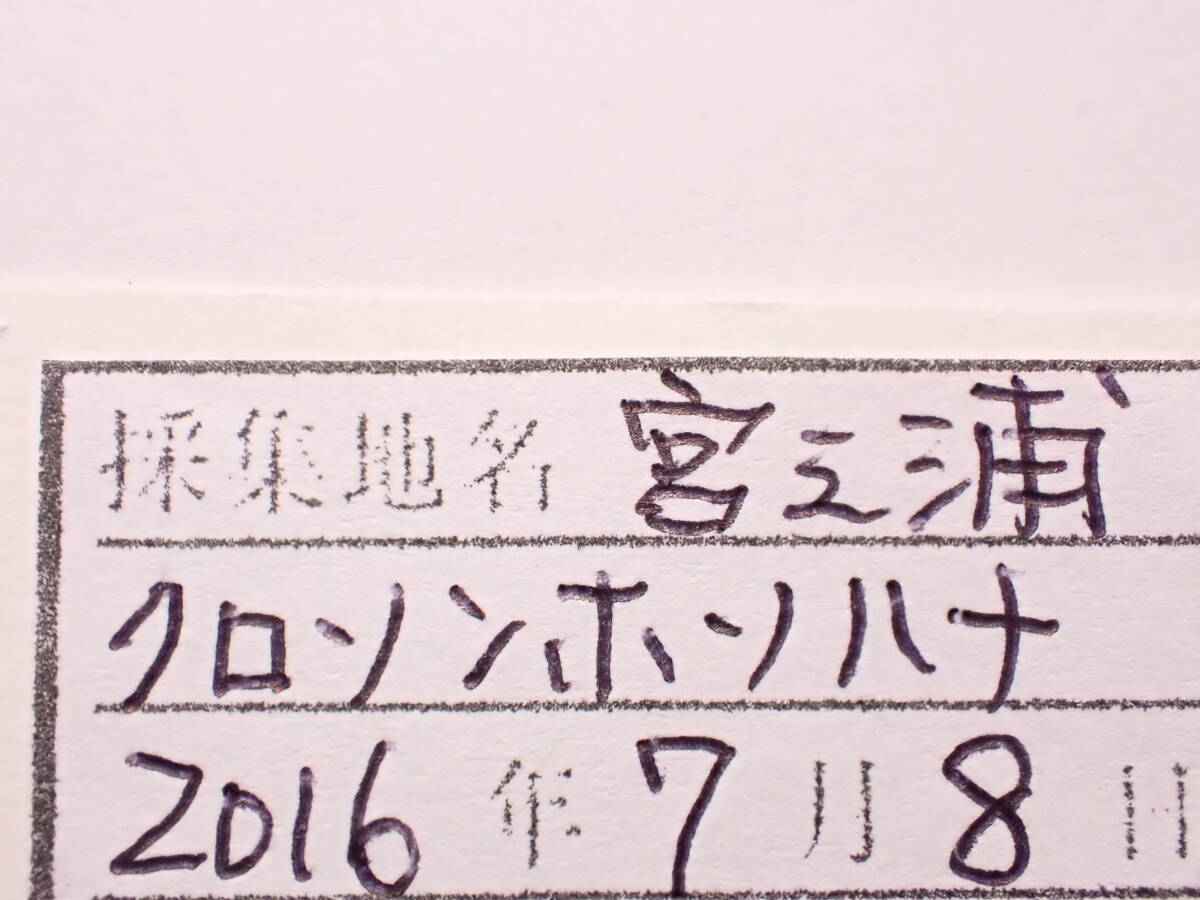 採集地名 宮之浦
クロソンホソハナ
2016年7月8日